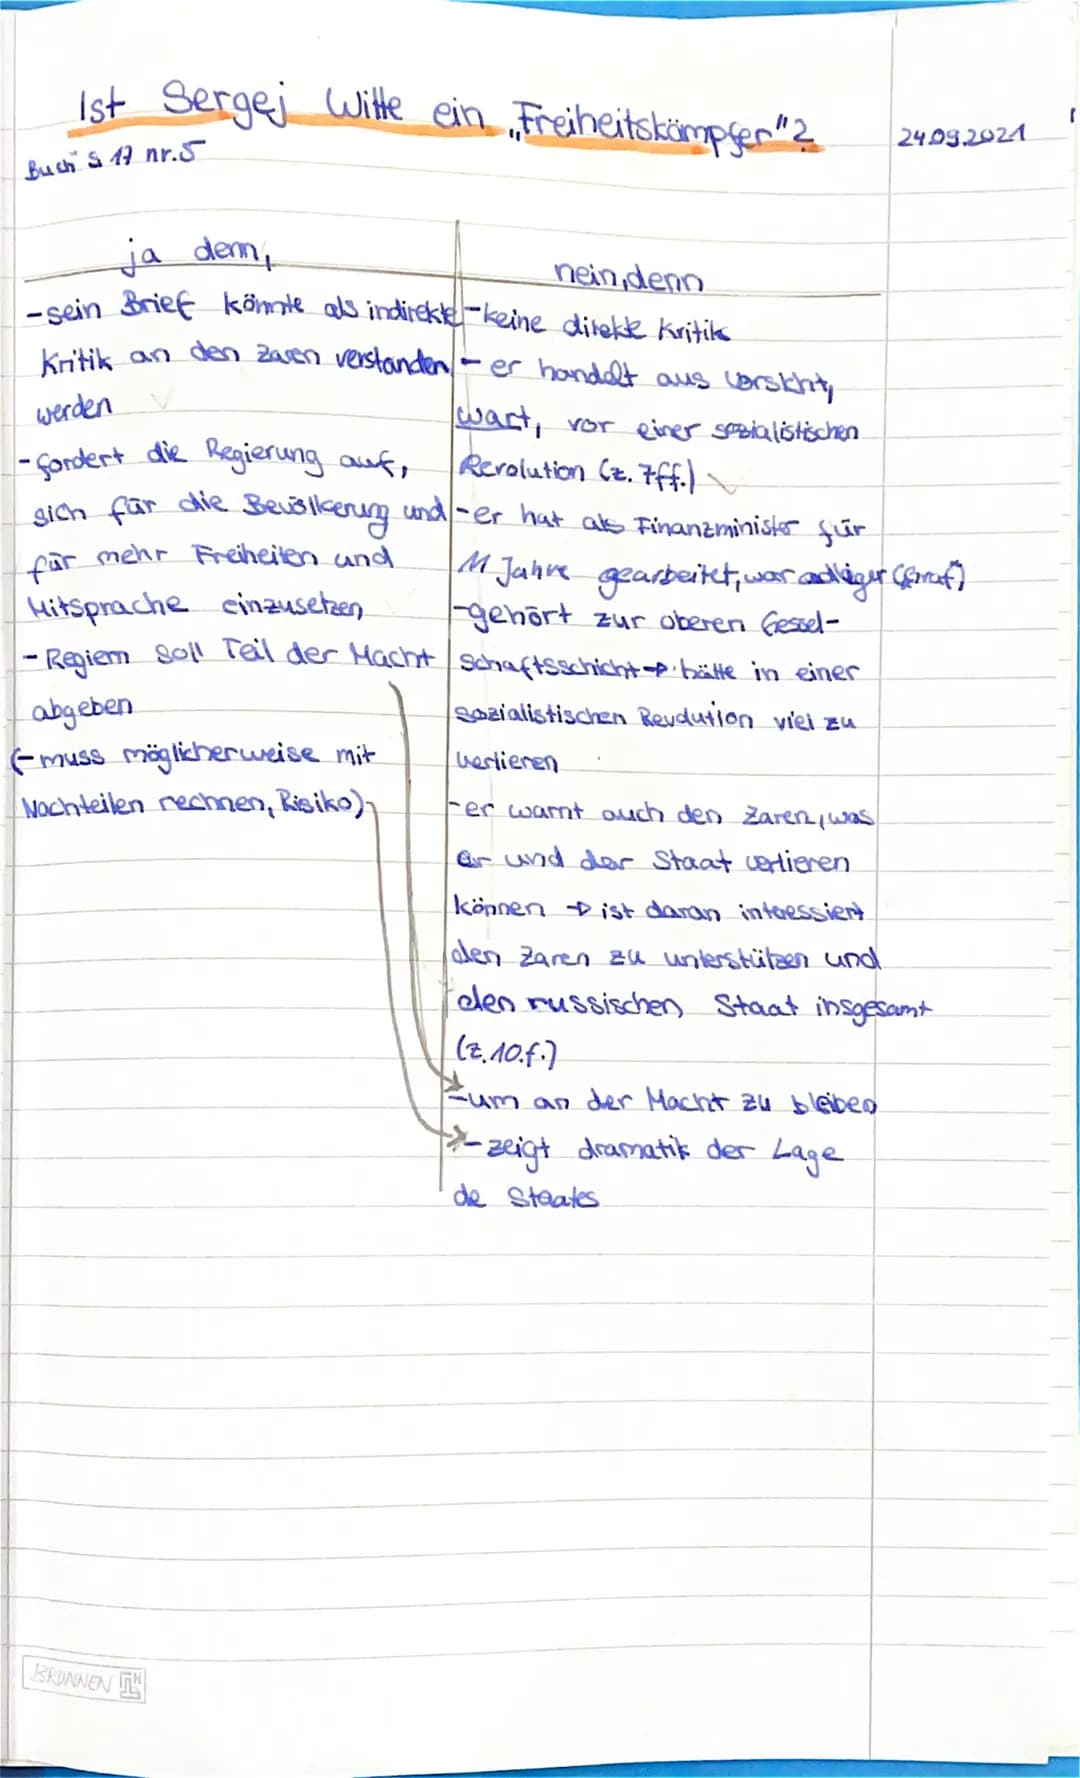 Ist Sergej Witte ein „Freiheitskämpfer"?
24.09.2021
Buch S 17 nr.5
ja denn,
-sein Brief könnte als indirekte
Kritik an den Zaren verstanden
werden
-fordert die Regierung auf,
sich für die Bevölkerung und
für mehr Freiheiten und
Mitsprache einzusetzen
- Regiern soll Teil der Macht
abgeben
(-muss möglicherweise mit
Nachteilen rechnen, Risiko)
nein, denn
-keine direkte Kritik
- er handelt aus Vorsicht,
wart, vor einer sozialistischen
Revolution (z. 7ff.)
-er hat als Finanzminister für
11 Jahre gearbeitet, war adliger (Graf)
-gehört zur oberen Gessel-
schaftsschicht → hätte in einer
sozialistischen Revolution viel zu
verlieren
-er warnt auch den Zaren, was
er und der Staat verlieren
können → ist daran interessiert
den Zaren zu unterstützen und
den russischen Staat insgesamt
(z. 10.f.)
-um an der Macht zu bleiben
- zeigt dramatik der Lage
de Staates
BRUNNEN